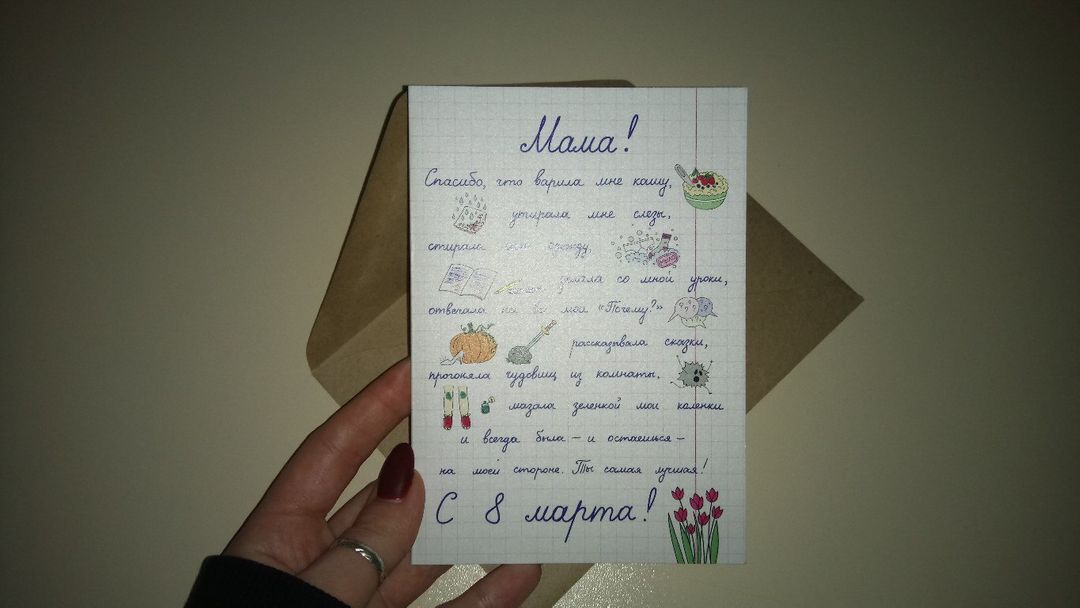 Мама!
Спасибо, что варила мне кашу,
утирала мне слезы,
стирала мою одежду,
делала со мной уроки,
отвечала на все мои «Почему?»
рассказывала сказки,
прогоняла чудовищ из комнаты,
мазала зеленкой мои коленки
и всегда была – и остаешься –
на моей стороне. Ты самая лучшая!
С 8 марта!